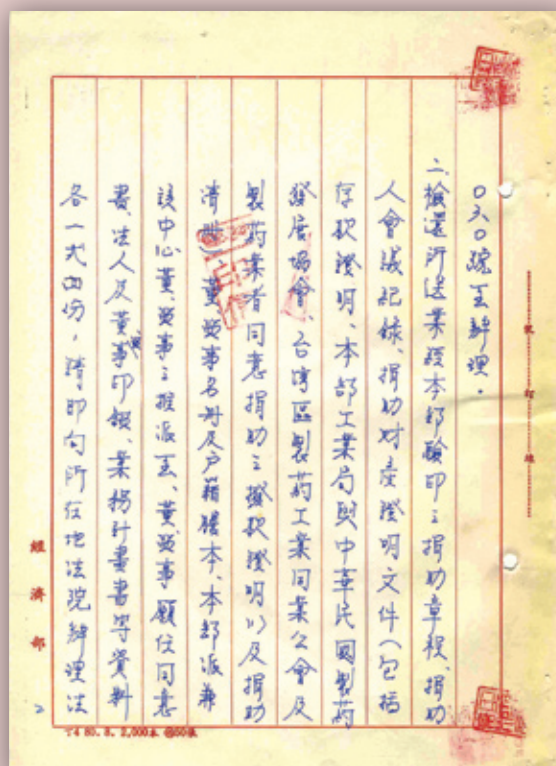 〇三〇號函辦理。
二、檢還所送業經本部驗印之捐助章程、捐助
人會議紀錄、捐助財產證明文件(包括
存款證明、本部工業局與中華民國製药
發展協會、台灣區製药工業同業公會及
製药業者同意捐助之撥款證明)以及捐助
清冊、董監事名冊及戶籍謄本、本部派兼
該中心董、監事之推派函、董、監事願任同意
書、法人及董事印鑑、業務計畫書等資料
各一式四份,請即向所在地法院辦理法
經濟部
2
裝
訂
線
74 80. 8. 2,000本